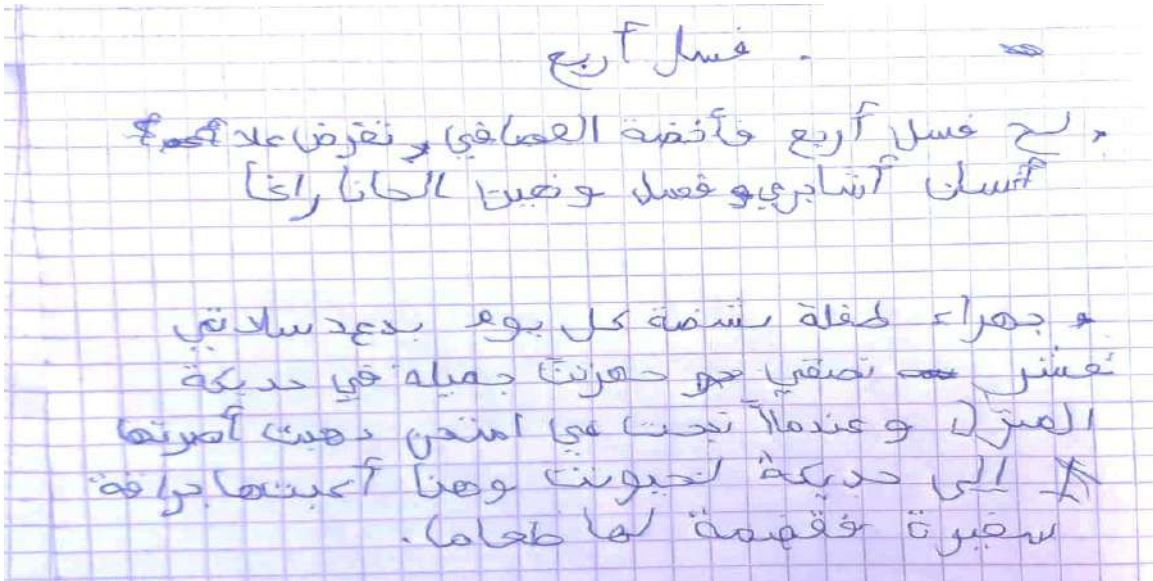 فسل أربع
لح فسل أربع فأخضة العصافي و تغرض علا
أنسان أشابري و فصل وضهين الحانا رائنا
و جهراء طفلة نشضة كل يوم بدعد سلاتي
تصقي جو حهرنت جميلة في حديكة
المنزل وعندما أنجحت في امتحن دهبت أصرتها
إلى حديكة لحيونت وهنا أعبتها جرافة
سفيرة فقضمة لها طعاما.